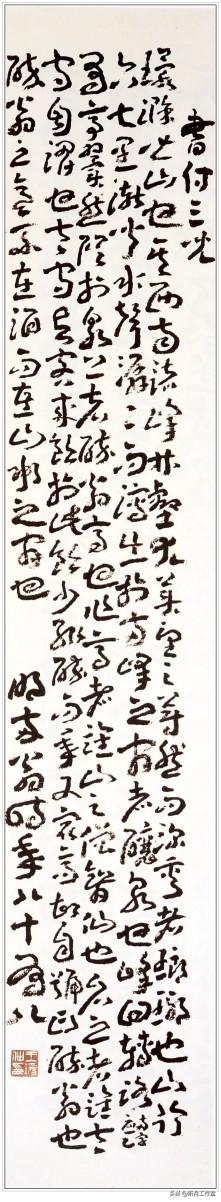 書付三兒
環滁皆山也其西南諸峰林壑尤美望之蔚然而深秀者瑯琊也山行
六七里漸聞水聲潺潺而瀉出於兩峰之間者釀泉也峰回路轉
有亭翼然臨於泉上者醉翁亭也作亭者誰山之僧智仙也名之者誰太
守自謂也太守與客來飲於此飲少輒醉而年又最高故自號曰醉翁也
醉翁之意不在酒而在山水之間也
明兩翁時年八十有八